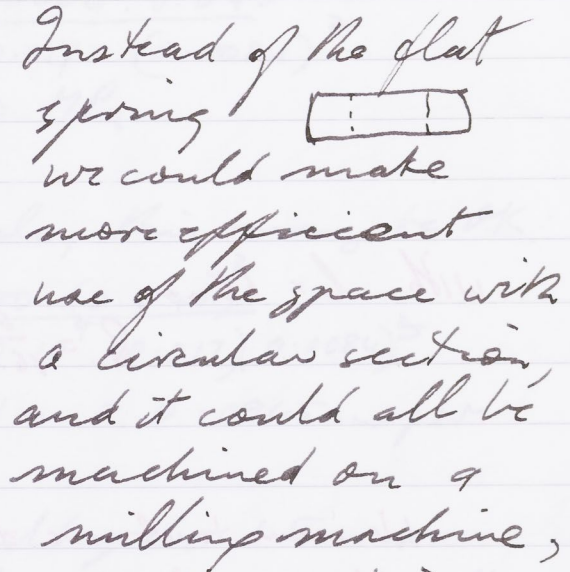 Instead of the flat
spring
we could make
more efficient
use of the space with
a circular section,
and it could all be
machined on a
milling machine,